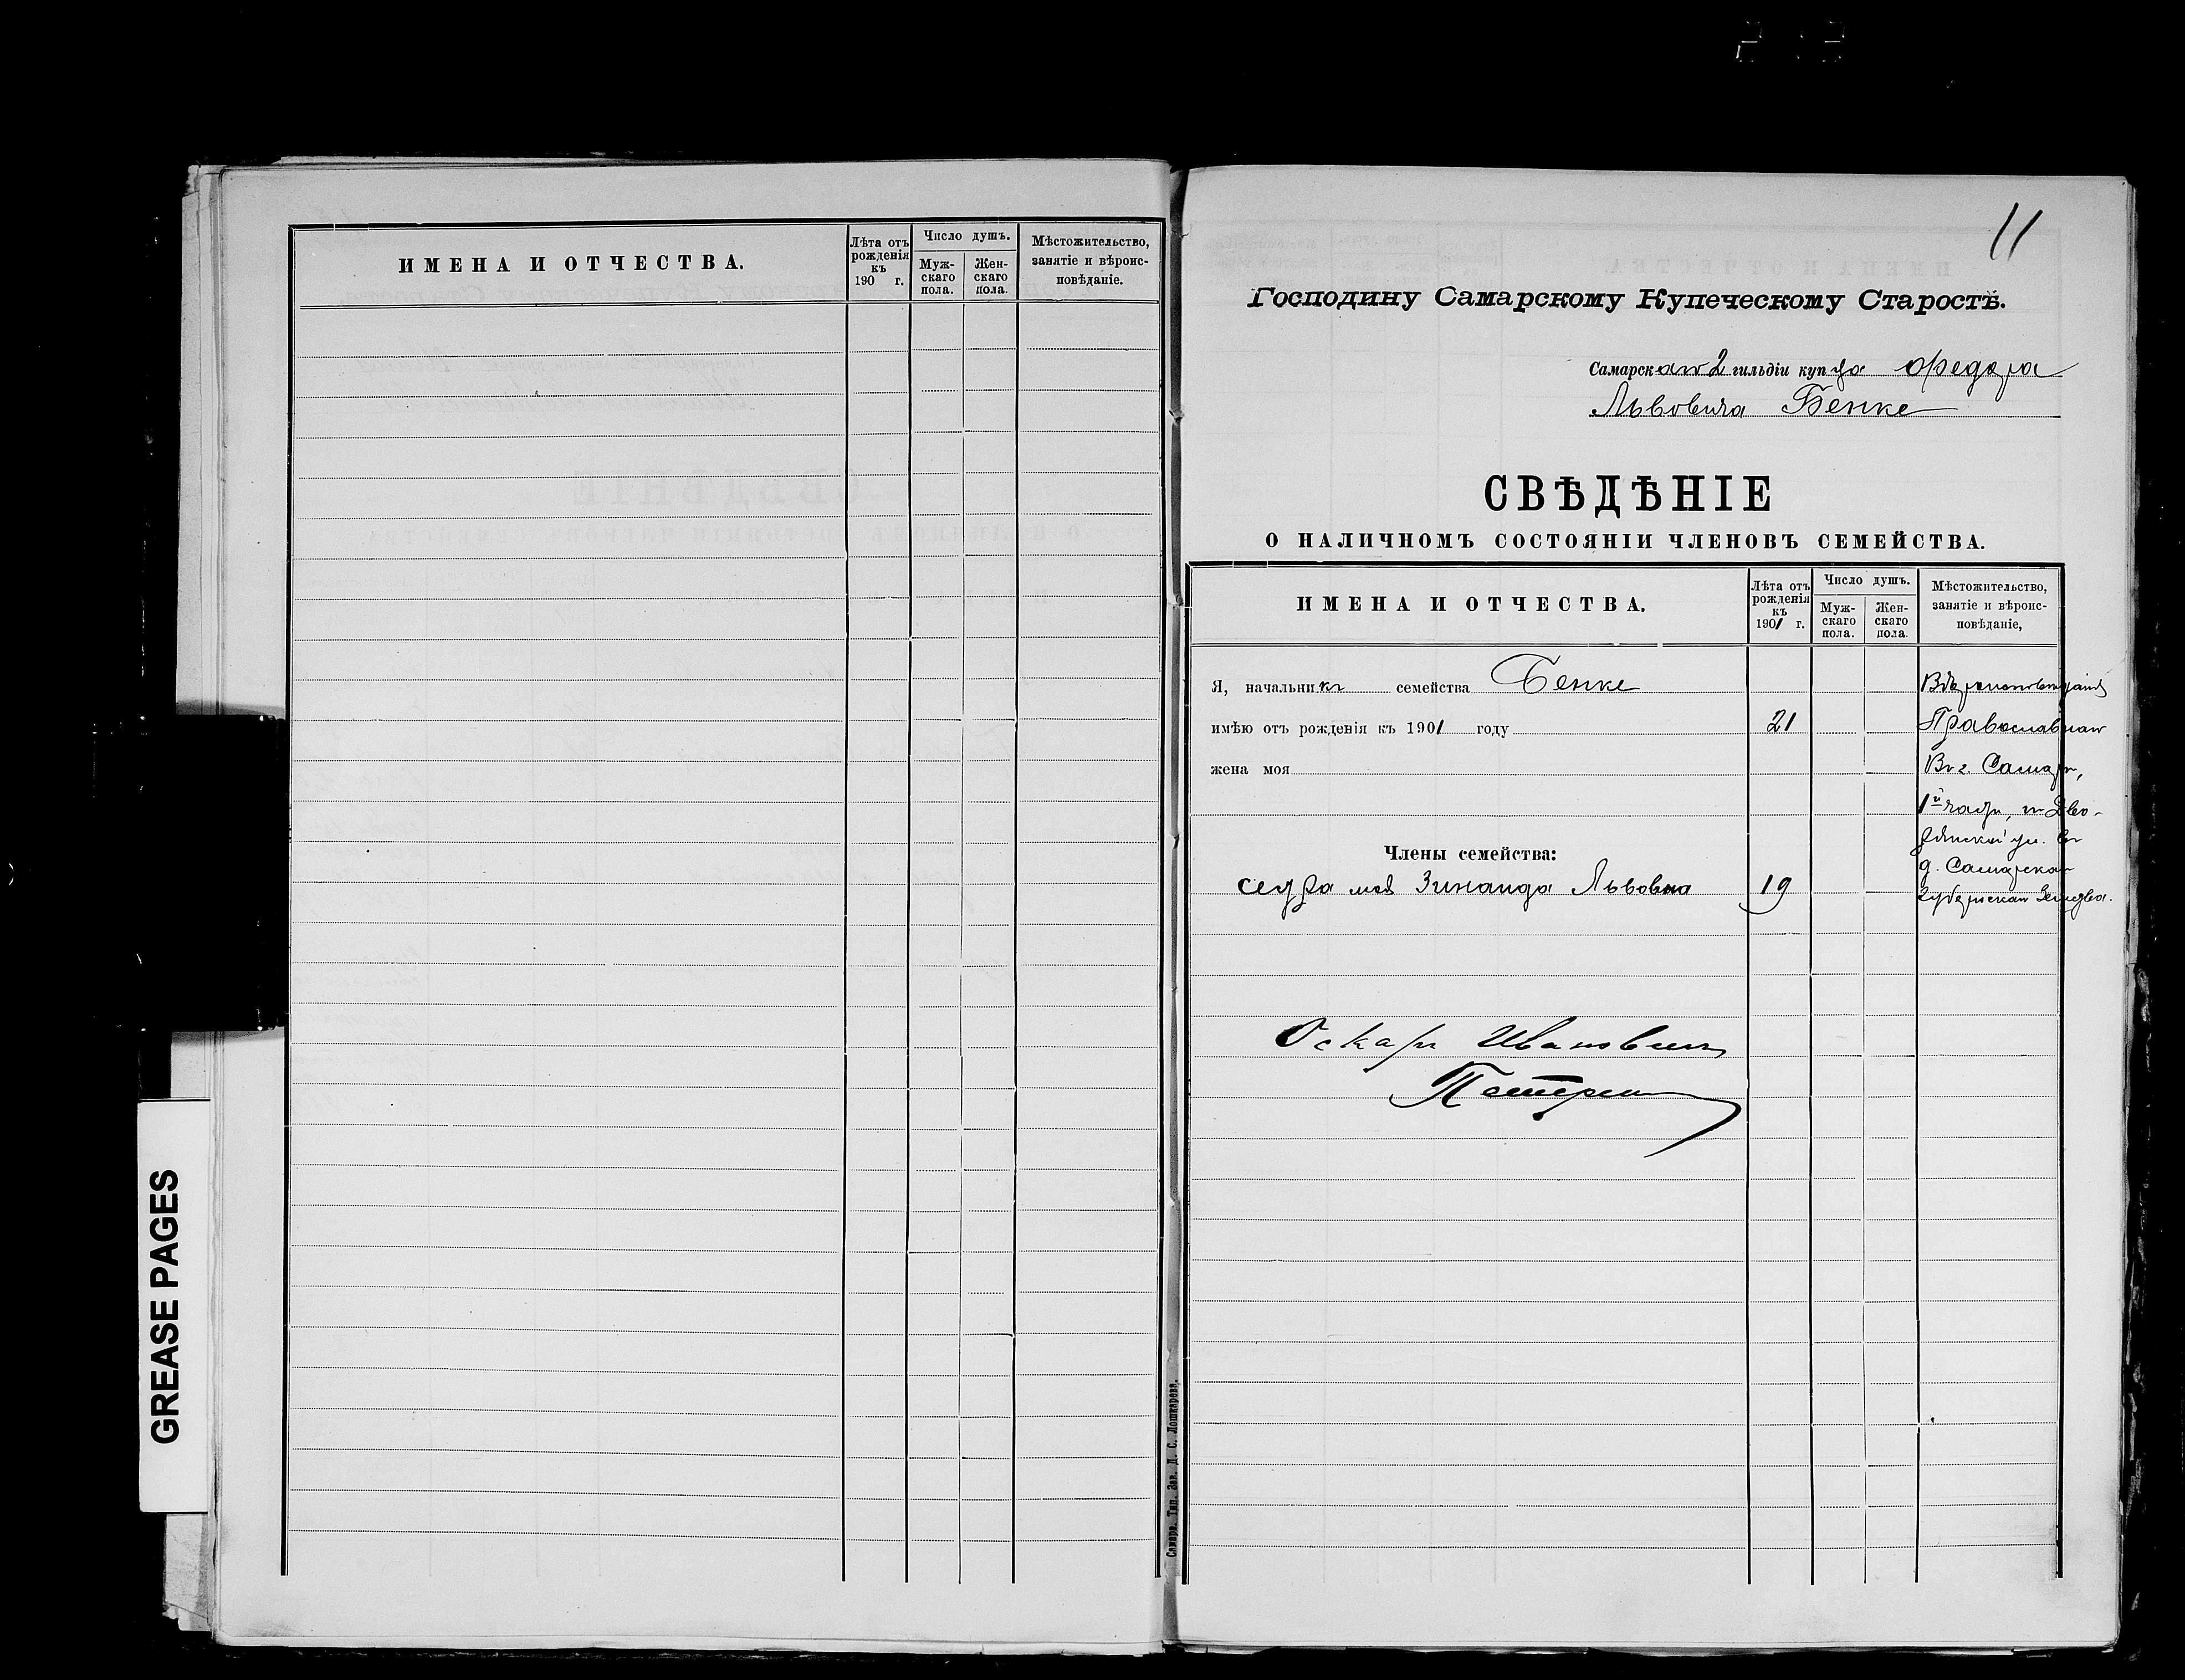 ИМЕНА И ОТЧЕСТВА.
Лѣта отъ
рожденія
къ
190 г.
Число душъ.
Муж-
скаго
пола.
Жен-
скаго
пола.
Мѣстожительство,
занятіе и вѣроис-
повѣданіе.
GREASE PAGES
11
Господину Самарскому Купеческому Старостѣ.
Самарскаго 2 гильдіи купца Федора
Львовича Бенке
СВѢДѢНІЕ
О НАЛИЧНОМЪ СОСТОЯНІИ ЧЛЕНОВЪ СЕМЕЙСТВА.
ИМЕНА И ОТЧЕСТВА.
Лѣта отъ
рожденія
къ
1901 г.
Число душъ.
Муж-
скаго
пола.
Жен-
скаго
пола.
Мѣстожительство,
занятіе и вѣроис-
повѣданіе,
Я, начальникъ семейства Бенке
Вѣроисповѣданія
имѣю отъ рожденія къ 1901 году 21
Православнаго
жена моя
Въ г. Самарѣ,
1й части, по Дво-
рянской ул. въ
Члены семейства:
д. Самарскаго
сестра моя Зинаида Львовна 19
Губернскаго Земства.
Оскаръ Ивановичъ
Самара. Тип. Зав. Д. С. Лошкарева.